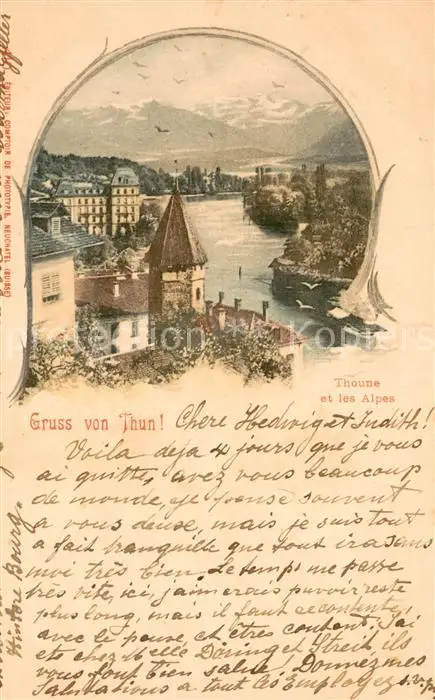 Thoune
et les Alpes
Gruss von Thun! Chere Hedwig et Judith!
Voila deja 4 jours que je vous
ai quitté, avez vous beaucoup
de monde, je pense souvent
a vous deuse, mais je suis tout
a fait tranquille que tout ira sans
moi très bien. Le temps me passe
très vite, ici, j'aimerais puvoir reste
plus long, mais il faut ce contente,
avec le peuse, et êtres content. J'ai
ete chez Melle Doring et Streit, ils
vous font bien salué! Donnez mes
Salutations a tout les Employez s.v.p.
EDITEUR, COMPTOIR DE PHOTOTYPIE, NEUCHATEL (SUISSE)
Bourg.